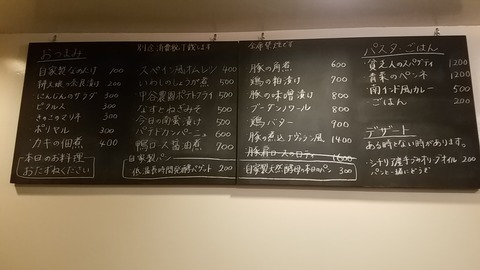 おつまみ
自家製なめたけ 100
300
にんじんのサラダ 300
ピクルス 300
きのこのマリネ 300
ポリヤル 300
カキの佃煮 400
本日のお料理
おたずねください
別途消費税頂戴します
スペイン風オムレツ 400
いわしのしょうが煮 500
中谷農園ポテトフライ 500
なすとねぎみそ 500
今日の南蛮漬け 500
パテドカンパーニュ 600
鴨ロース醤油煮 700
自家製パン
低温長時間発酵バゲット 200
豚の角煮 600
鶏の粕漬け 700
豚の味噌漬け 800
ブーダンノワール 800
鶏バター 900
豚の煮込ナヴァラン風 1400
豚肩ロースのロティ 1600
自家製天然酵母の本日のパン 300
パスタ・ごはん
貧乏人のスパゲティ 1200
青菜のペンネ 1200
南インド風カレー 500
ごはん 200
デザート
ある時とない時があります。
シチリア産手づみオリーブオイル 200
パンと一緒にどうぞ